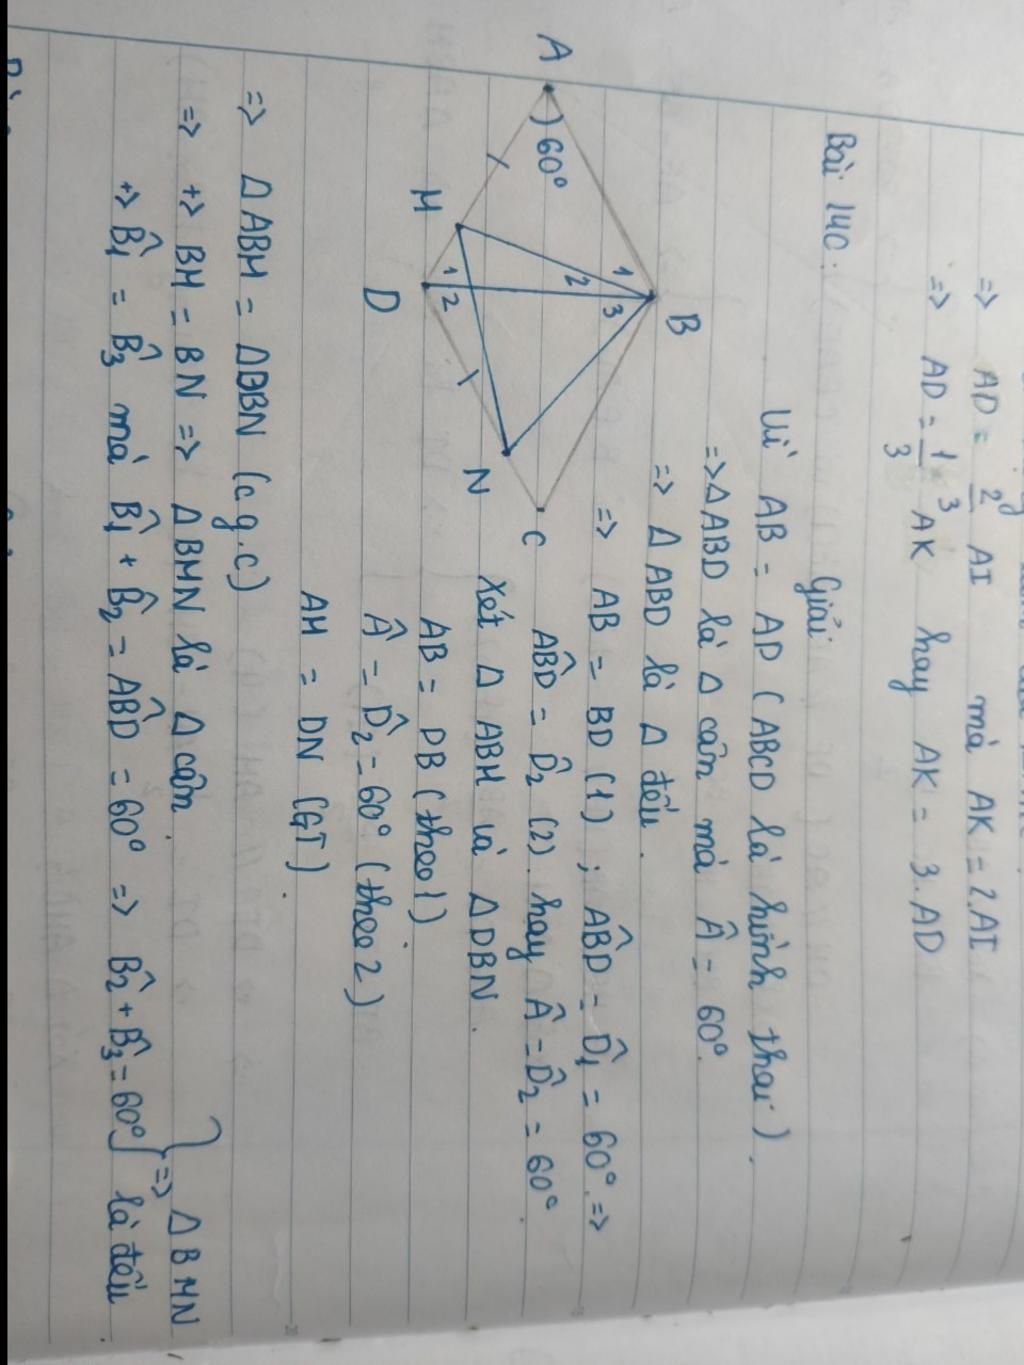 => AD = 2/3 AI mà AK = 2.AI
=> AD = 1/3 AK hay AK = 3.AD
Bài 140.
Giải
Vì AB = AD (ABCD là hình thoi).
=> ΔABD là Δ cân mà Â = 60°.
=> ΔABD là Δ đều.
=> AB = BD (1) ; AB̂D = D̂1 = 60° =>
AB̂D = D̂2 (2). hay Â = D̂2 = 60°.
Xét Δ ABM và ΔDBN.
AB = DB (theo 1).
Â = D̂2 = 60° (theo 2)
AM = DN (GT).
=> ΔABM = ΔDBN (c.g.c)
=> +> BM = BN => ΔBMN là Δ cân.
+> B̂1 = B̂3 mà B̂1 + B̂2 = AB̂D = 60° => B̂2 + B̂3 = 60°
} => ΔBMN
là đều.
A
60°
B
1
2
3
M
1
2
D
N
C